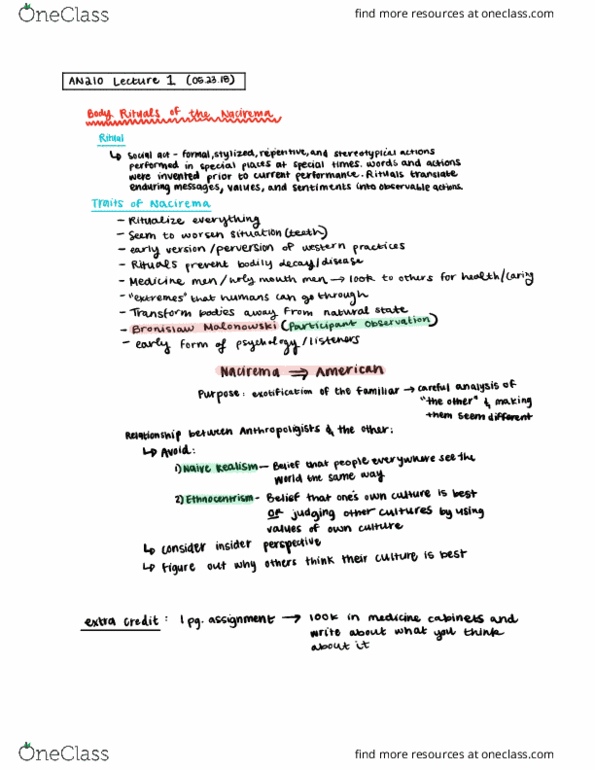 OneClass
find more resources at oneclass.com
AN210 Lecture 1 (05.23.18)
Body Rituals of the Nacirema
Ritual
↳ Social act - formal, stylized, repetitive, and stereotypical actions
performed in special places at special times. words and actions
were invented prior to current performance. Rituals translate
enduring messages, values, and sentiments into observable actions.
Traits of Nacirema
- Ritualize everything
- Seem to worsen situation (teeth)
- early version/perversion of western practices
- Rituals prevent bodily decay/disease
- Medicine men/holy mouth men → look to others for health/caring
- "extremes" that humans can go through
- Transform bodies away from natural state
- Bronislaw Malonowski (Participant Observation)
- early form of psychology/listeners
Nacirema ⇒ American
Purpose: exotification of the familiar → careful analysis of
"the other" & making
them seem different
Relationship between Anthropoligists & the other:
↳ Avoid:
1) Naive Realism - Belief that people everywhere see the
world the same way
2) Ethnocentrism - Belief that one's own culture is best
or judging other cultures by using
values of own culture
↳ consider insider perspective
↳ Figure out why others think their culture is best
extra credit: 1 pg. assignment → look in medicine cabinets and
write about what you think
about it
OneClass
find more resources at oneclass.com